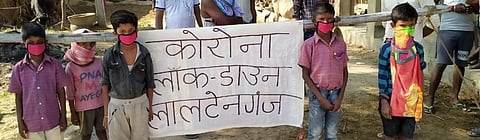 कोरोना
लाक-डाउन
लालटेनगंज